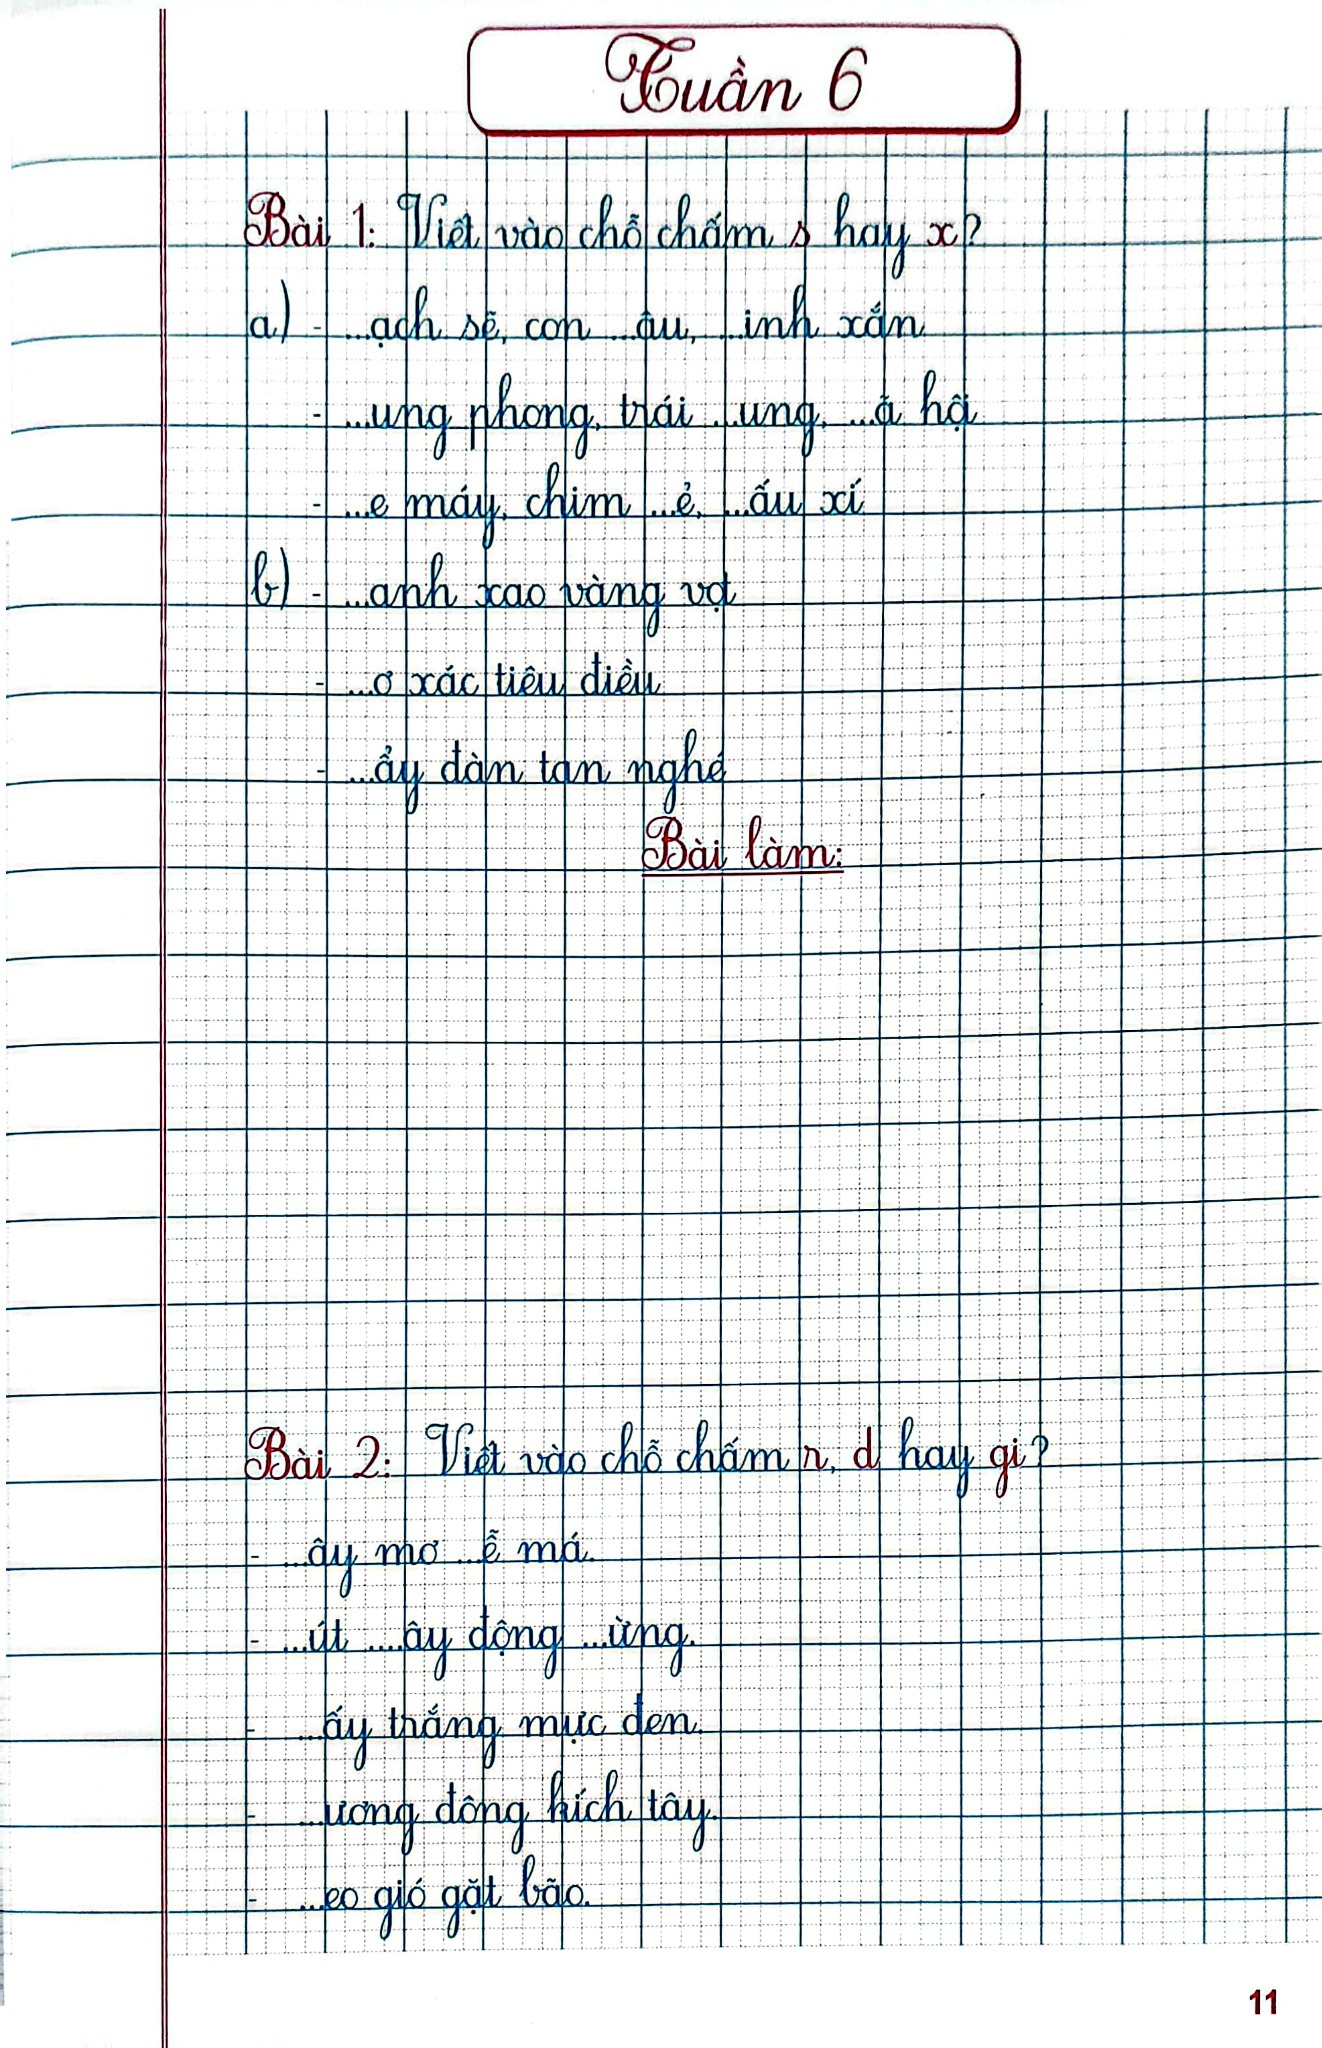 Tuần 6
Bài 1: Viết vào chỗ chấm s hay x?
a) - ...ạch sẽ, con ...âu, ...inh xắn
- ...ung phong, trái ...ung, ...ã hội
- ...e máy, chim ...ẻ, ...ấu xí
b) - ...anh xao vàng vọt
- ...ơ xác tiêu điều
- ...ẩy đàn tan nghé
Bài làm:
Bài 2: Viết vào chỗ chấm r, d hay gi?
- ...ây mơ ...ễ má.
- ...út ...ây động ...ừng.
- ...ấy trắng mực đen.
- ...ương đông kích tây.
- ...eo gió gặt bão.
11